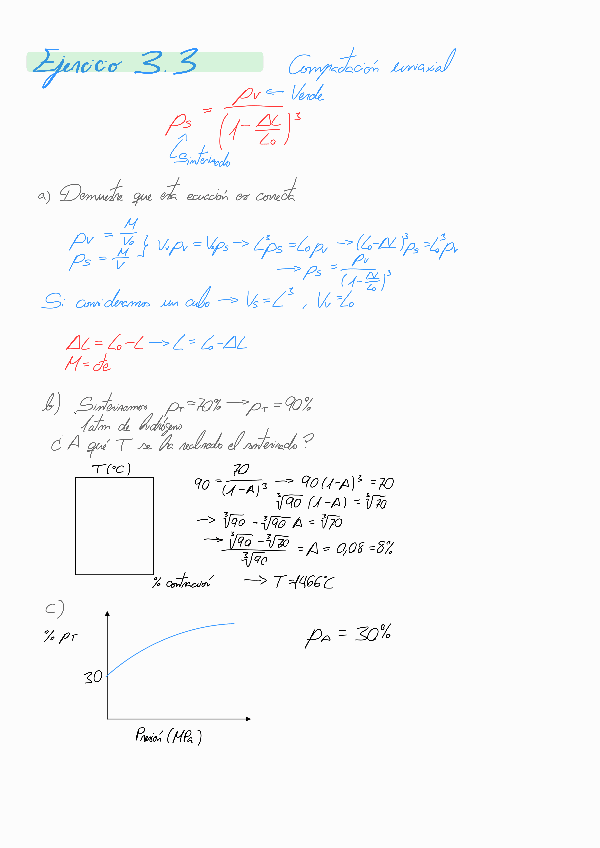 Ejercicio 3.3
Compactación uniaxial
ρs = ρv ← Verde / (1 - ΔL/L₀)³
↳ Sinterizado
a) Demuestre que esta ecuación es correcta
ρv = M/V₀
ρs = M/V } V₀ρv = Vρs → L³ρs = L₀³ρv → (L₀-ΔL)³ρs = L₀³ρv
→ ρs = ρv/(1-ΔL/L₀)³
Si consideramos un cubo → Vs = L³, Vv = L₀
ΔL = L₀-L → L = L₀-ΔL
M = cte
b) Sinterizamos ρT = 70% → ρT = 90%
1 atm de hidrógeno
¿A qué T se ha realizado el sinterizado?
T (°C)
90 = 70/(1-A)³ → 90(1-A)³ = 70
∛90 (1-A) = ∛70
→ ∛90 - ∛90 A = ∛70
→ (∛90 - ∛70)/∛90 = A = 0,08 = 8%
% contracción
→ T = 1466°C
c)
% ρT
ρA = 30%
30
Presión (MPa)